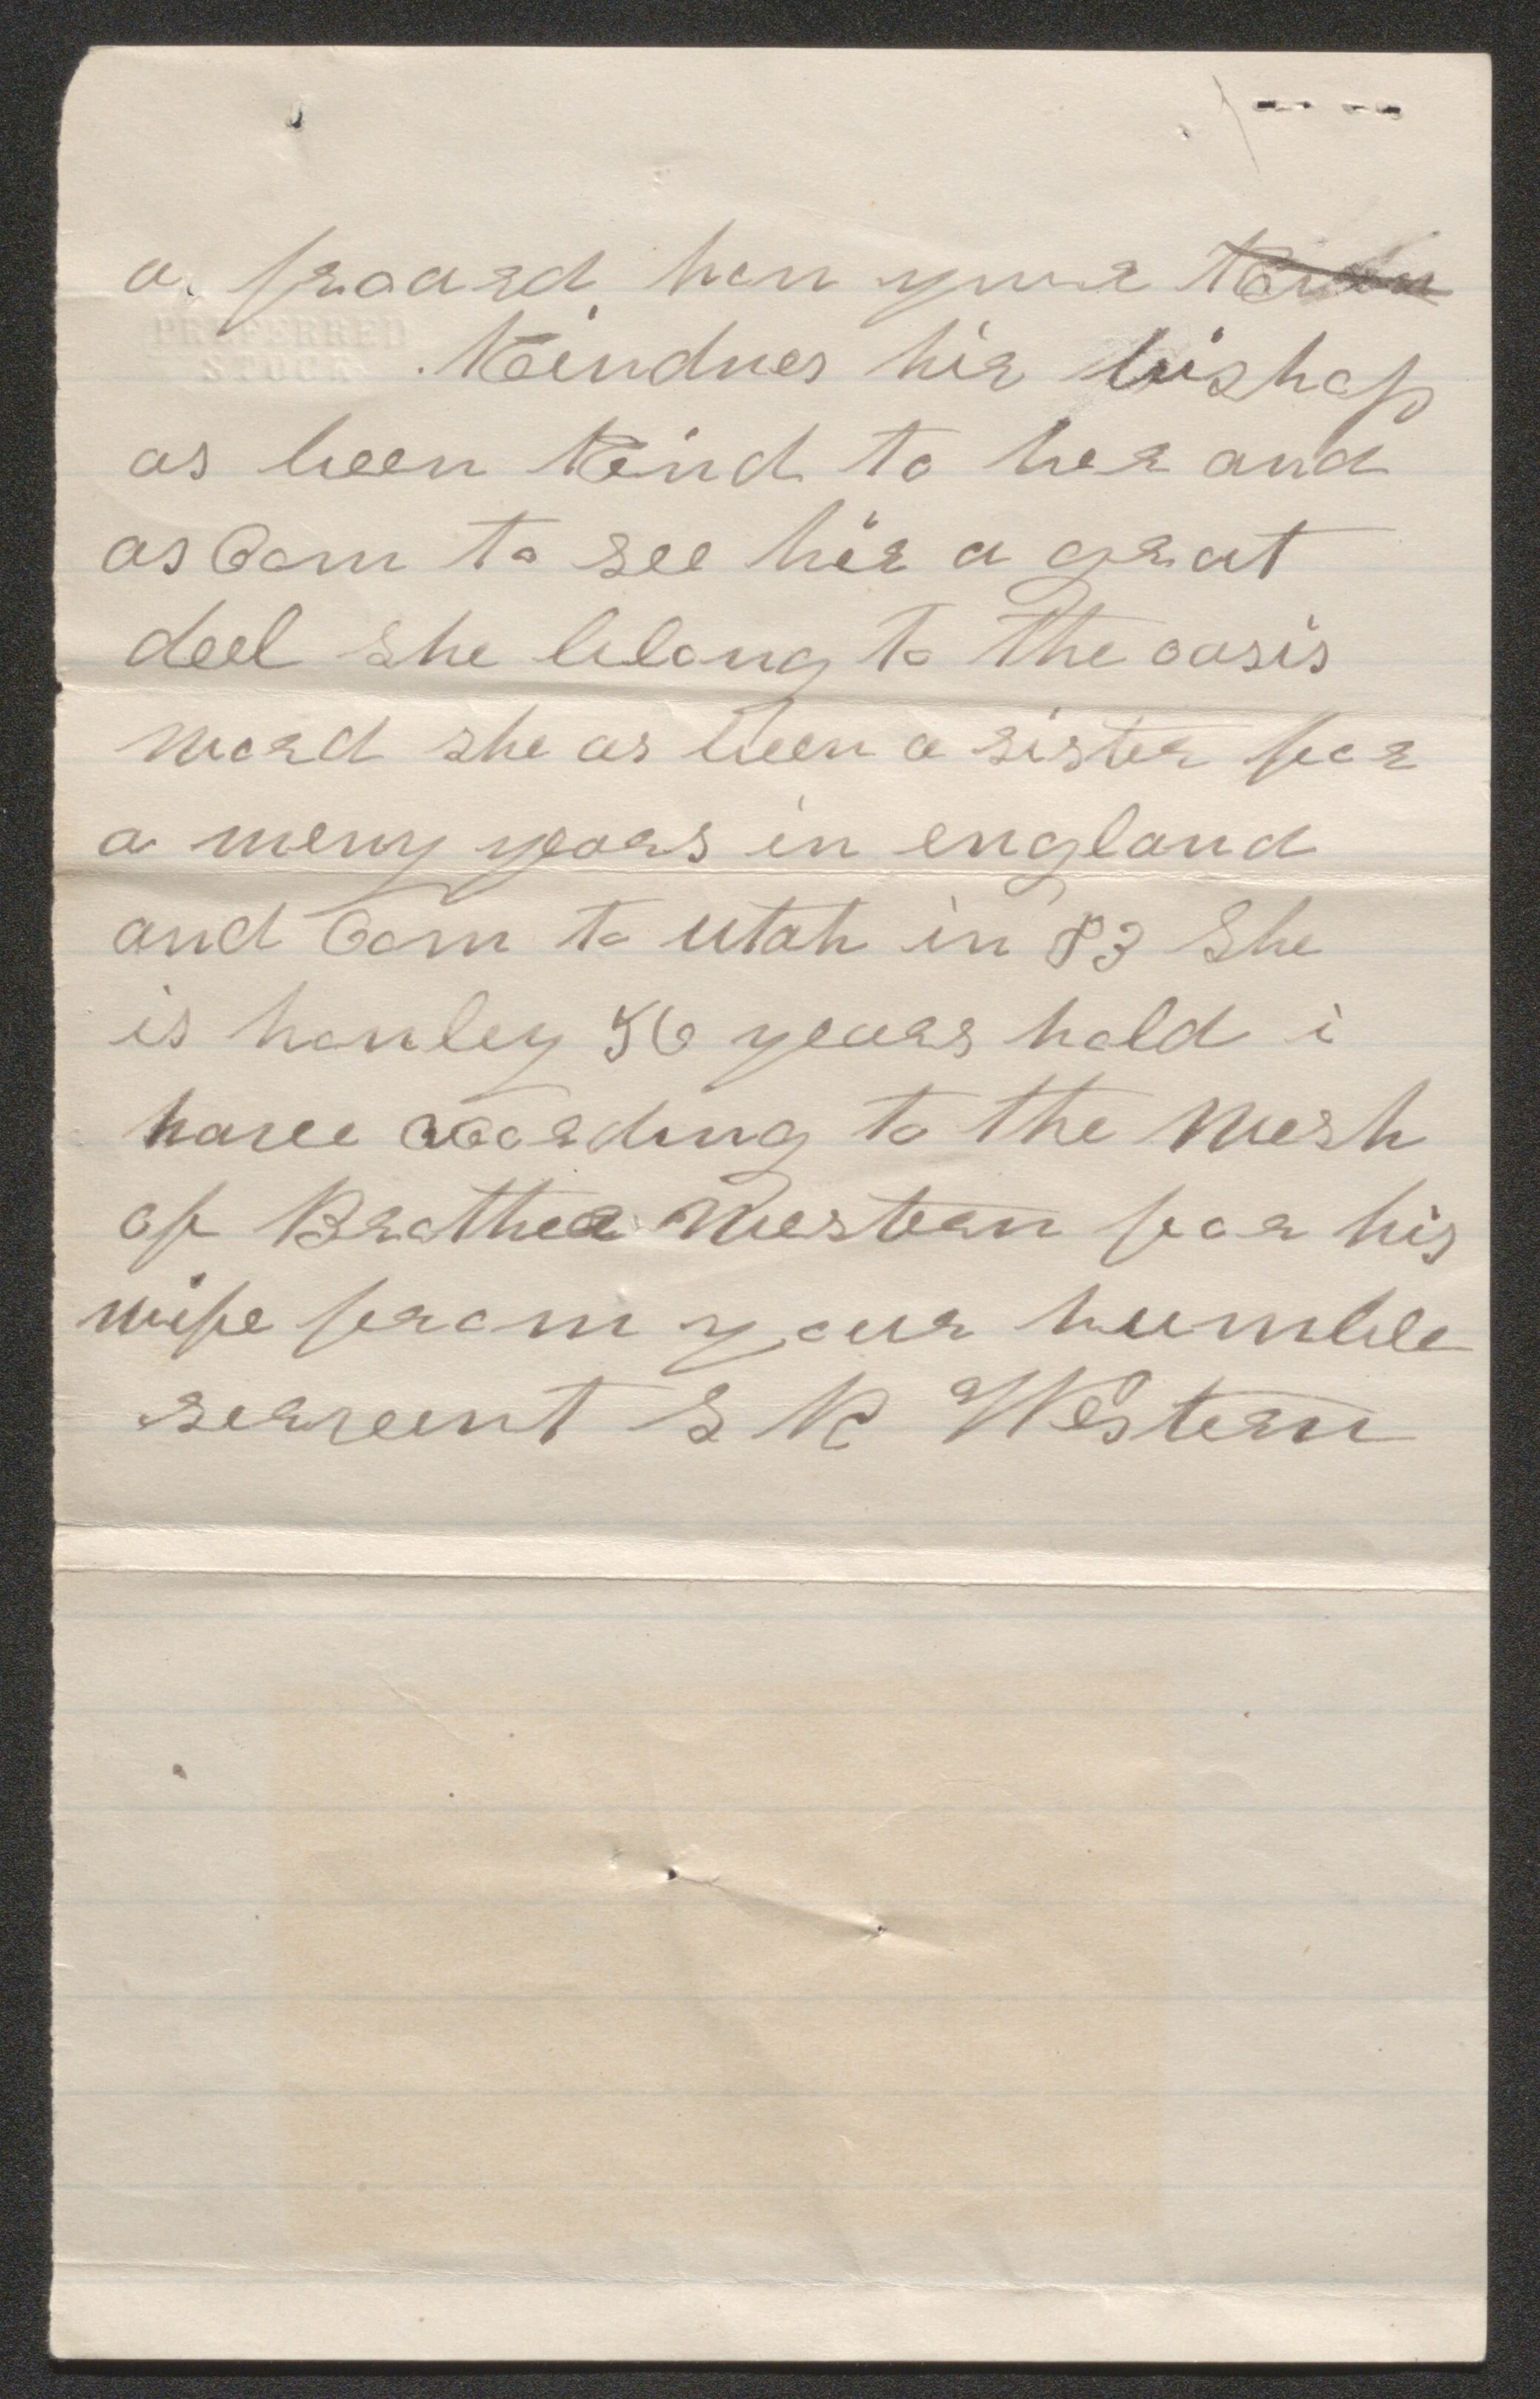 a froard hon your
PREFERRED
STOCK
Kindnes hir bishop
as been Kind to her and
as Com to see hir a great
deel she belong to the oasis
word she as been a sister for
a meny years in england
and Com to utah in 83 She
is honley 56 years hold i
have acording to the wesh
of Brother Western for his
wife from your humble
servent S K Western